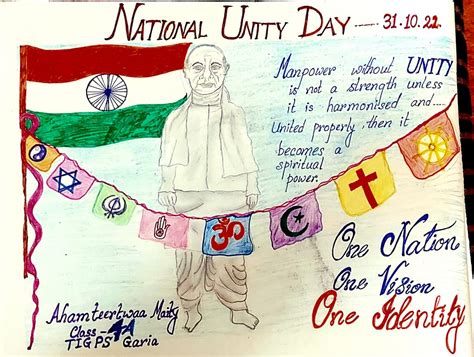 NATIONAL UNITY DAY ---- 31.10.22
Manpower without UNITY
is not a strength unless
it is harmonised and----
United properly then it
becomes a
spiritual
power.
ॐ
One Nation
One Vision
One Identity
Ahamteertwaa Maity
Class-4A
TIGPS Garia